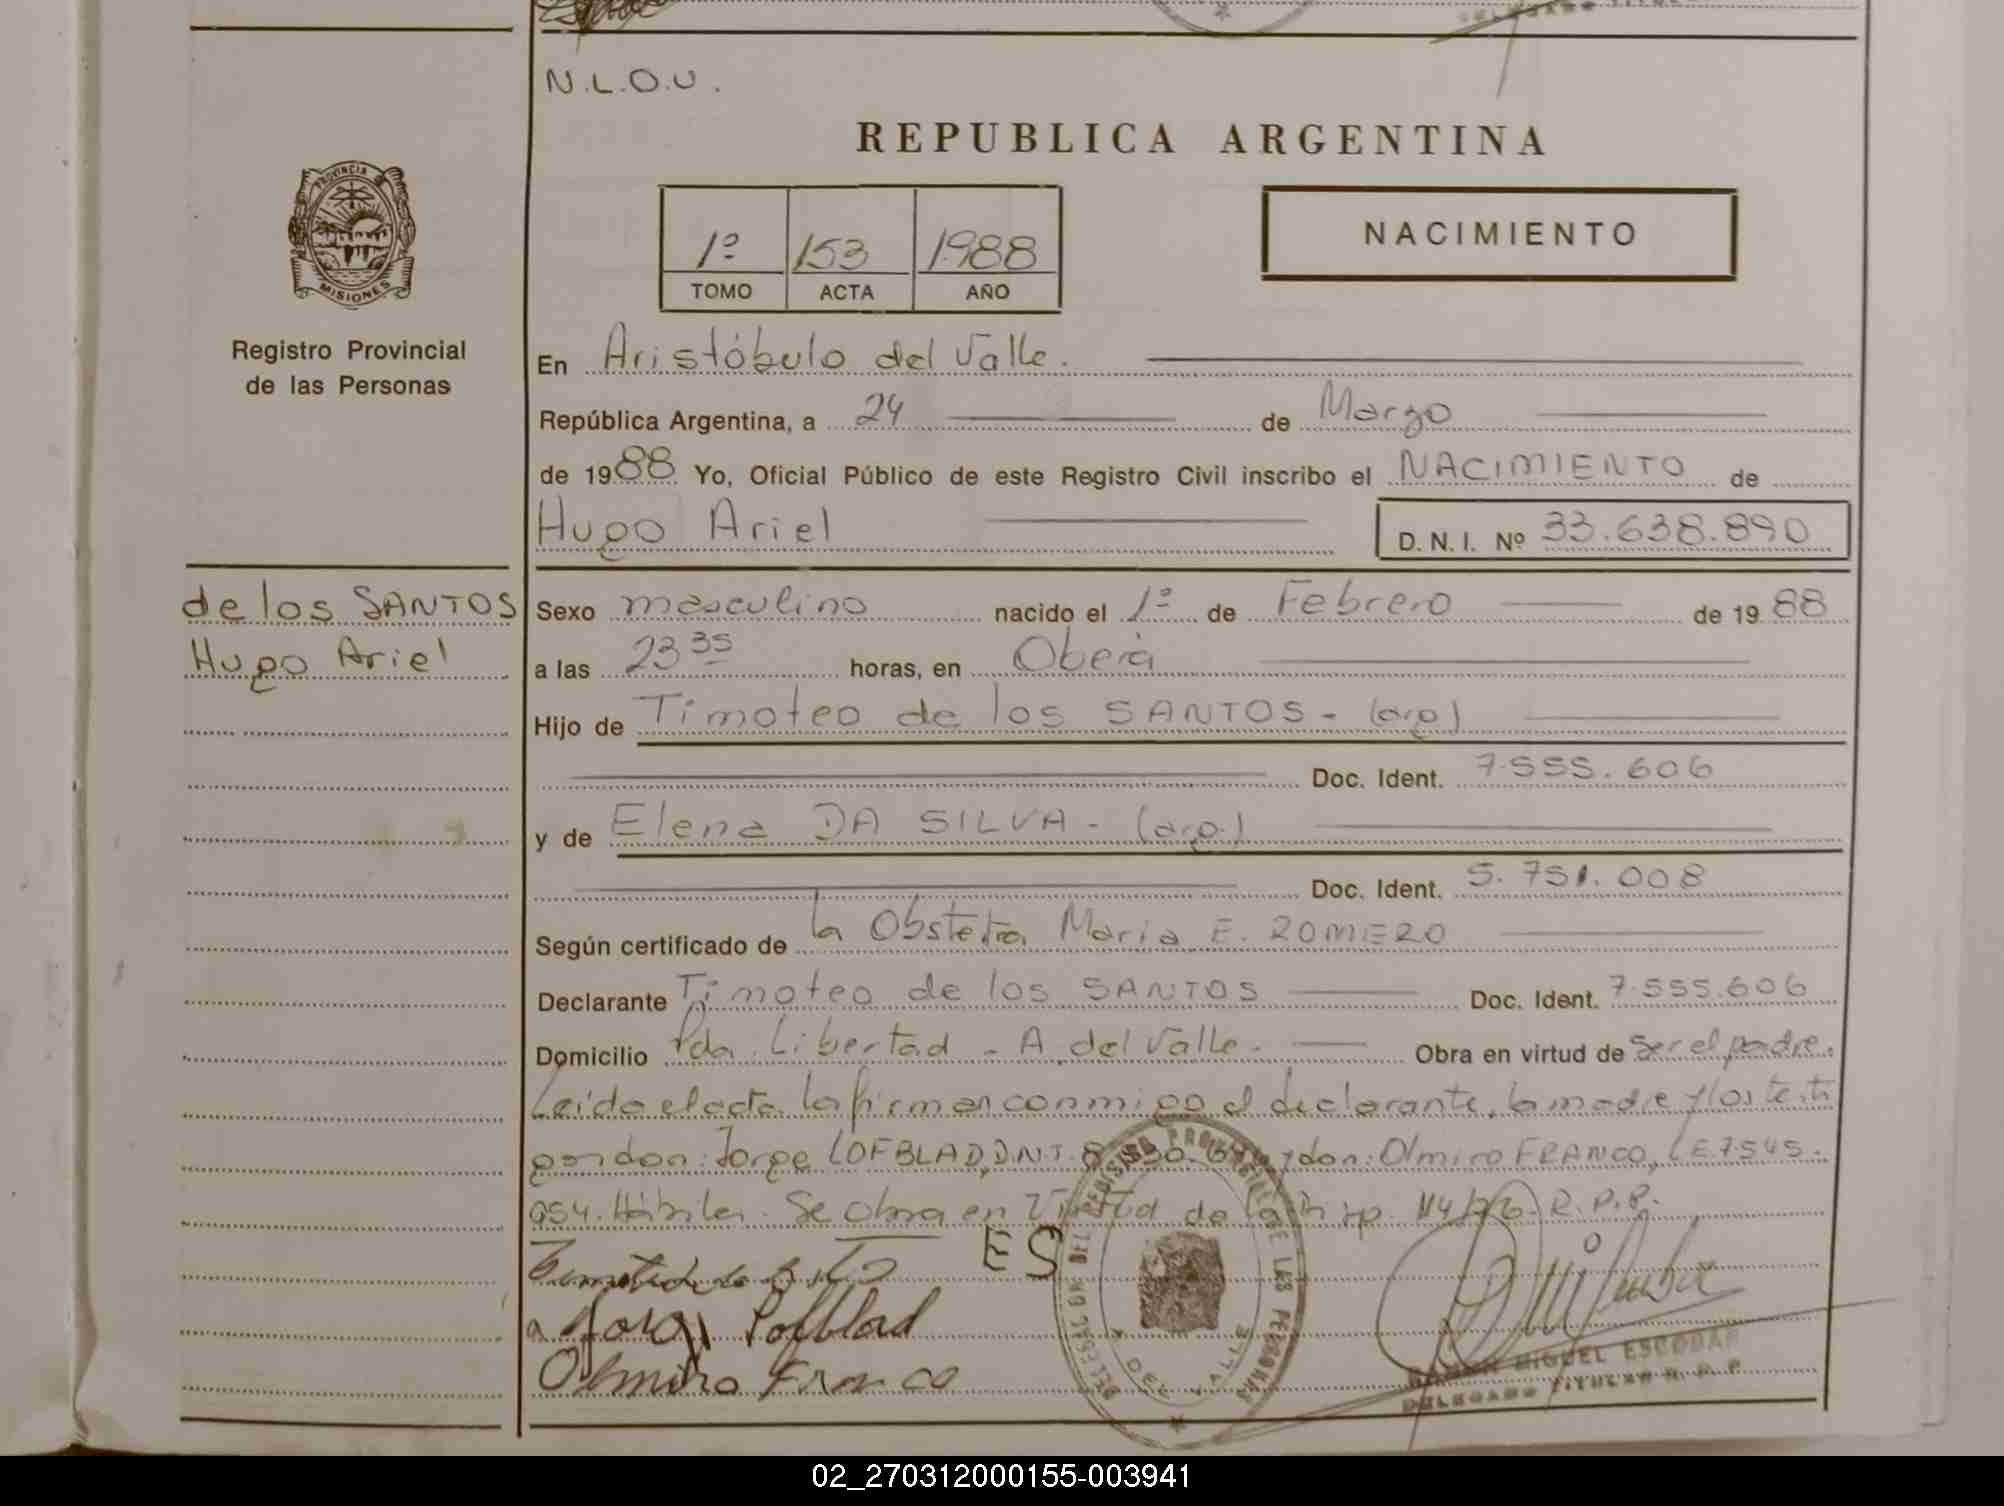 N.L.O.U.
REPUBLICA ARGENTINA
PROVINCIA DE
MISIONES
1º 153 1988
TOMO ACTA AÑO
NACIMIENTO
Registro Provincial
de las Personas
En Aristóbulo del Valle.
República Argentina, a 24 de Marzo
de 1988 Yo, Oficial Público de este Registro Civil inscribo el NACIMIENTO de
Hugo Ariel D. N. I. Nº 33.638.890
de los SANTOS
Hugo Ariel
Sexo masculino nacido el 1º de Febrero de 1988
a las 23 35 horas, en Oberá
Hijo de Timoteo de los SANTOS - (arg)
Doc. Ident. 7.555.606
y de Elena DA SILVA - (arg.)
Doc. Ident. 5.751.008
Según certificado de la Obstetra Maria E. ROMERO
Declarante Timoteo de los SANTOS Doc. Ident. 7.555.606
Domicilio Pda. Libertad - A. del Valle - Obra en virtud de Ser el padre.
Leida el acta la firman conmigo el declarante, la madre y los testi
gos don: Jorge LOFBLAD, D.N.I. y don: Olmiro FRANCO, L.E. 7.545.
954. Hábiles. Se obra en Virtud de la Disp. 114/76 - R.P.P.
ES
Jorge Lofblad
Olmiro Franco
DELEGACION DEL REGISTRO PROVINCIAL DE LAS PERSONAS
A. DEL VALLE
RAMON MIGUEL ESCOBAR
DELEGADO TITULAR R. P. P.
02_270312000155-003941